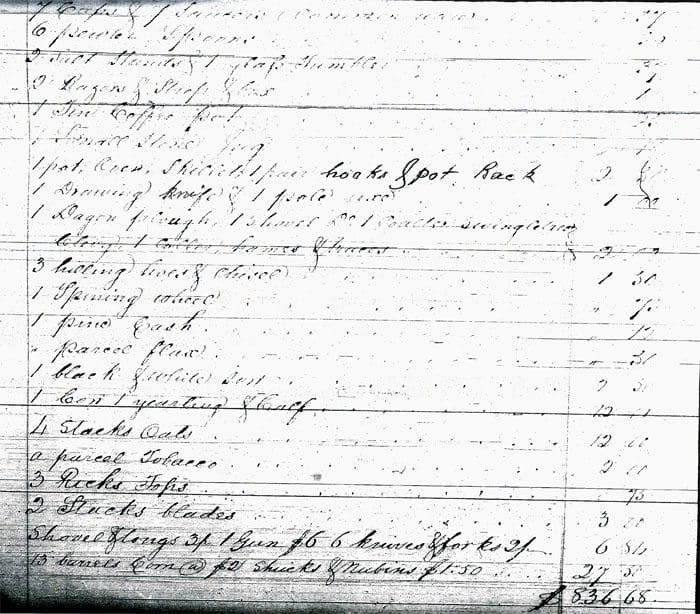 7 Cups & 7 Saucers Common ware
6 pewter Spoons
2 Salt Stands & 1 glass Tumbler
2 Razors & Strop & box 1
1 Tin Coffee pot
1 Small Stone Jug
1 pot, Oven, Skillet, 1 pair hooks & pot Rack 2
1 Drawing knife & 1 pole axe 1 00
1 Dagon plough, 1 Shovel Do 1 Coalter swingletree
Clevy, 1 Coller, hames & traces 2 00
3 hilling hoes & chisel 1 50
1 Spining wheel " 75
1 pine Cash
" parcel flax
1 black & white Sow 2 50
1 Cow 1 yearling & Calf 12 00
4 Stacks Oats 12 00
a parcel Tobacco 2 00
3 Ricks Tops 75
2 Stacks blades 3 00
Shovel & tongs 3/ 1 Gun $6 6 knives & forks 2/ 6 84
13 barrels Corn @ $2 Shucks & Nubins $1.50 27 50
$ 836 68